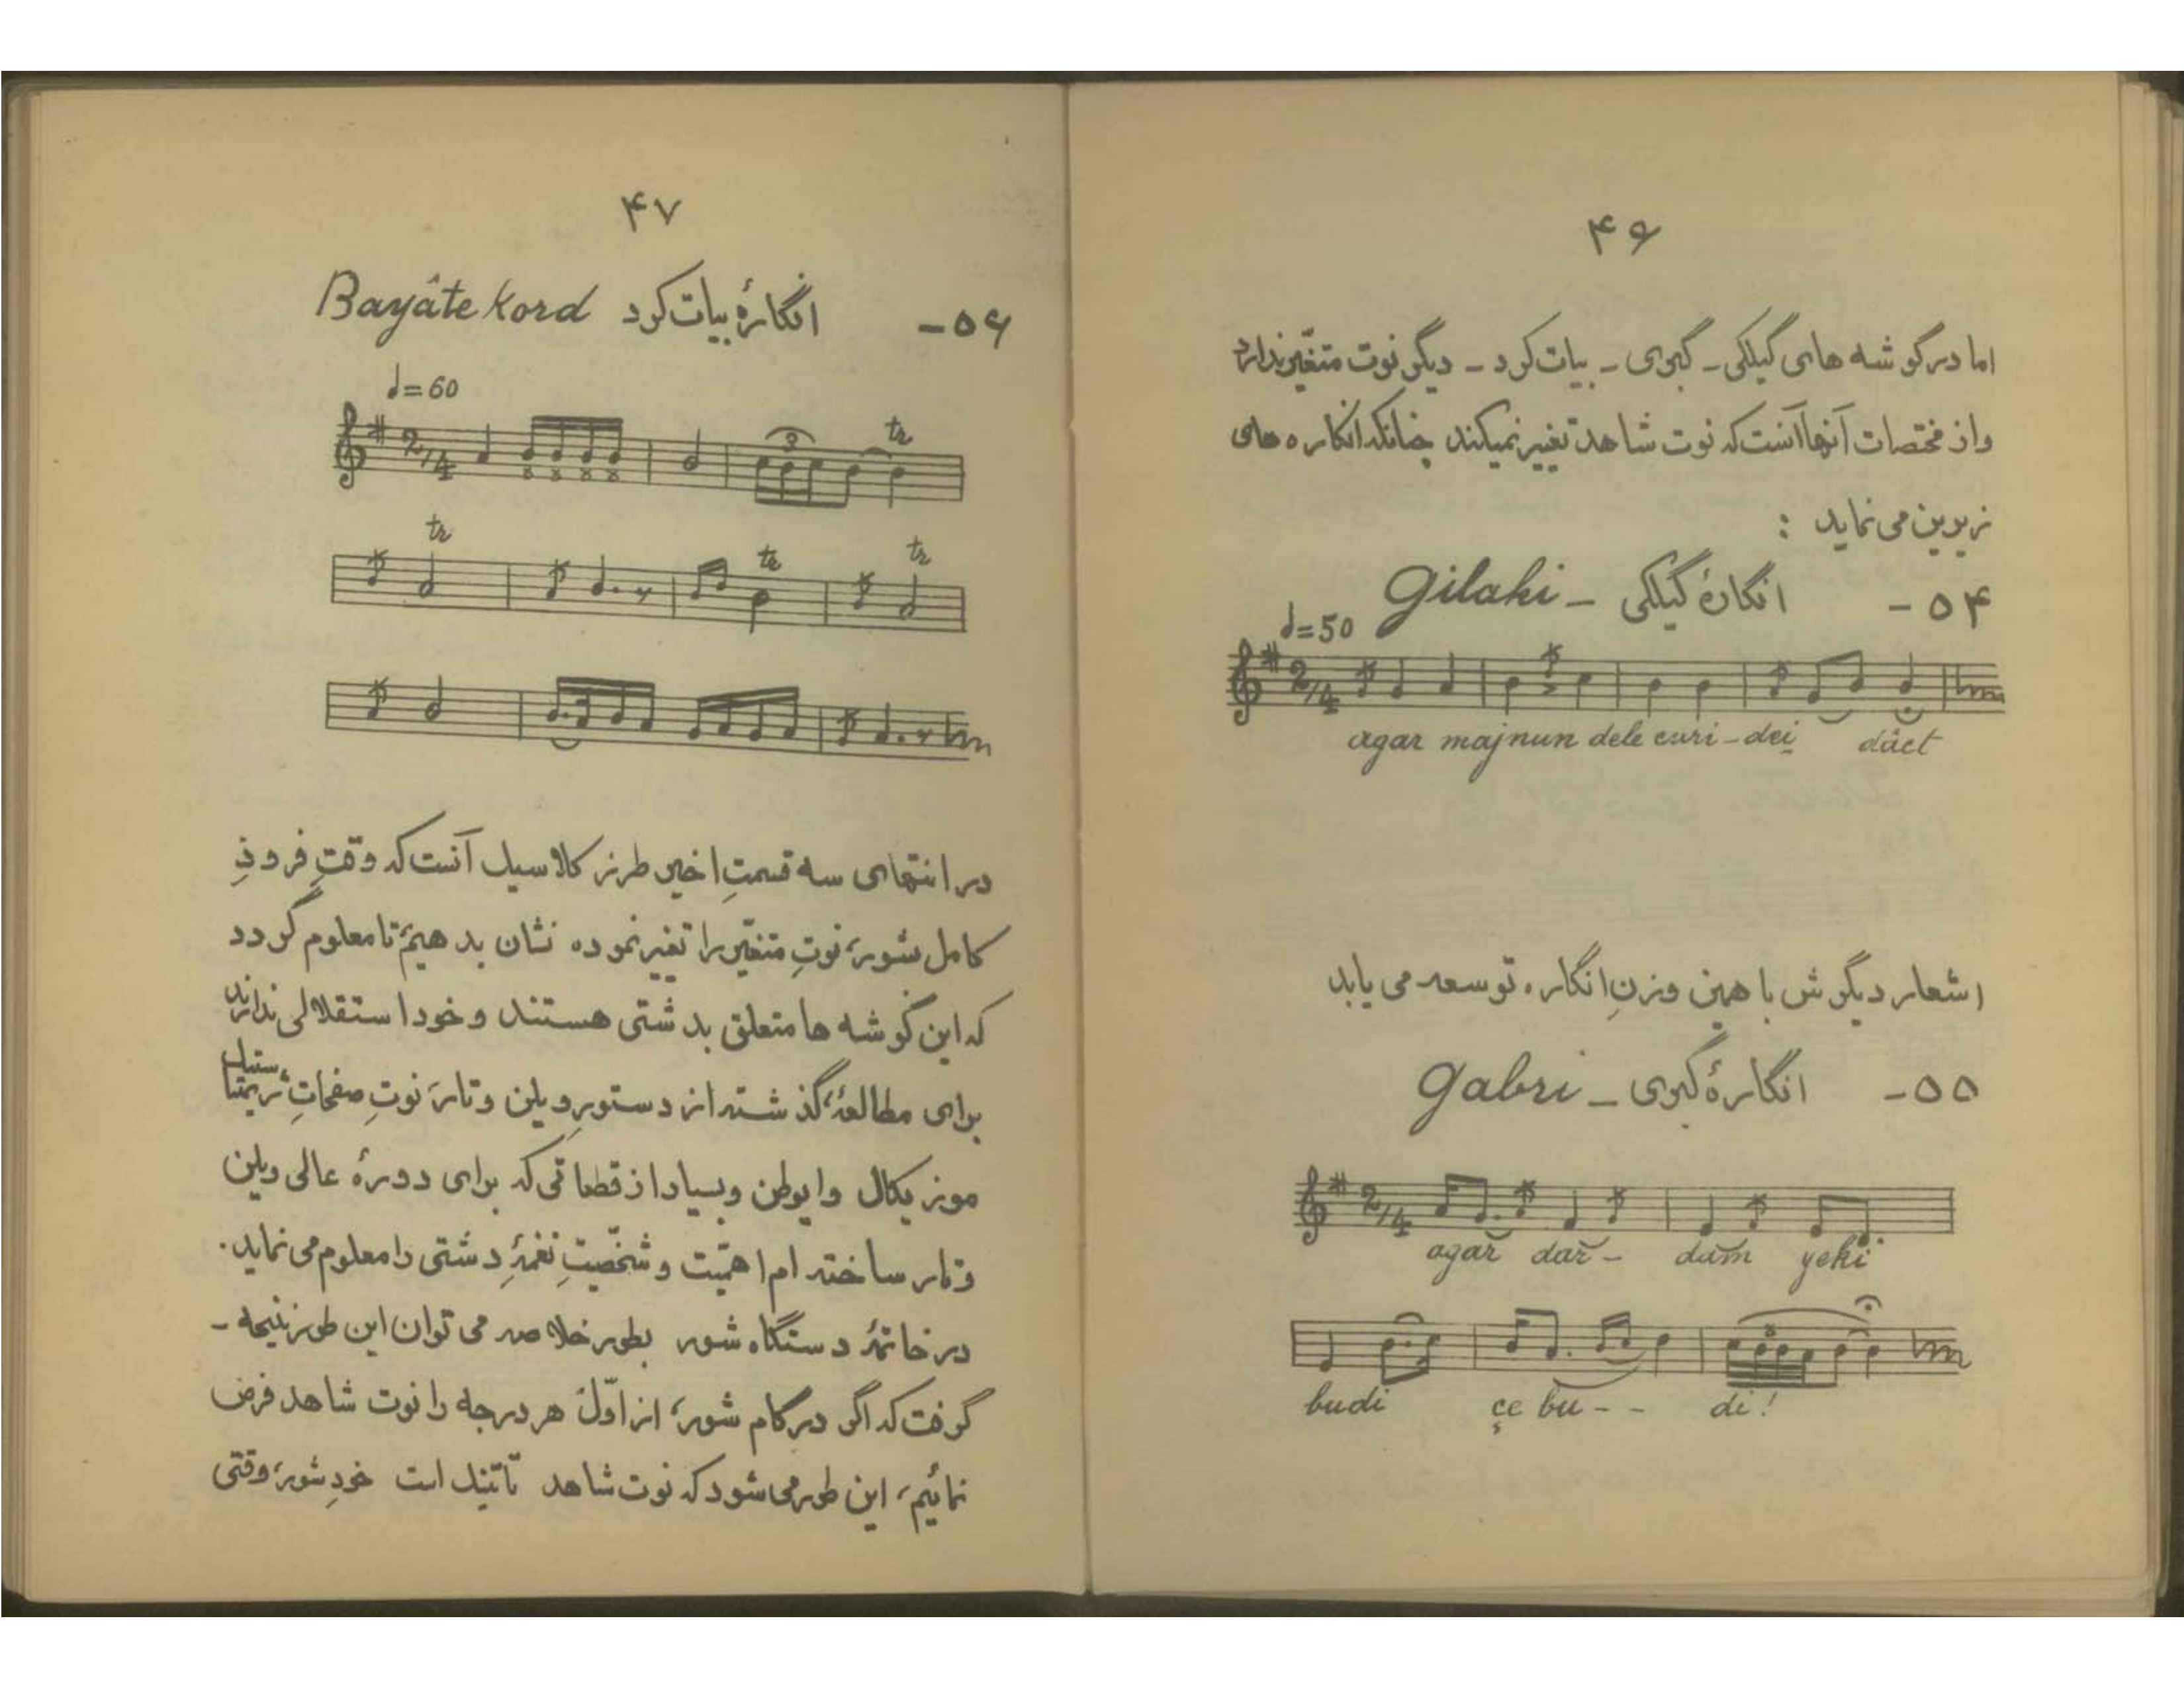 ۴۶
اما در گوشه های گیلکی - گبری - بیات کرد - دیگر نوت متغیّر ندارد
و از مختصات آنها آنست که نوت شاهد تغییر نمیکند چنانکه انگاره های
زیرین می نماید :
۵۴ - انگارهٔ گیلکی - Gilaki
♩=50
agar majnun dele curi-dei dâct
اشعار دیگرش با همین وزنِ انگاره توسعه می یابد
۵۵ - انگارهٔ گبری - Gabri
agar dar- dam yeki
budi çe bu - - di!
۴۷
۵۶ - انگارهٔ بیات کرد Bayâte Kord
♩=60
tr
3
tr tr tr
در انتهای سه قسمتِ اخیر طرز کلاسیک آنست که وقتِ فرودِ
کامل شور، نوتِ متغیّر را تغییر نموده نشان بدهیم تا معلوم گردد
که این گوشه ها متعلق بدشتی هستند و خود استقلالی ندارند
برای مطالعه، گذشته از دستورِ ویلن و تار، نوتِ صفحاتِ
موزیکال و ایوطن و بسیار از قطعاتی که برای دورهٔ عالی ویلن
و تار ساخته ام اهمیّت و شخصیّتِ نغمهٔ دشتی را معلوم می نماید.
در خاتمهٔ دستگاه شور بطور خلاصه می توان این طور نتیجه -
گرفت که اگر در گام شور، از اوّل هر درجه را نوت شاهد فرض
نمائیم، این طور می شود که نوت شاهد تأتیک است خودِ شور، وقتی